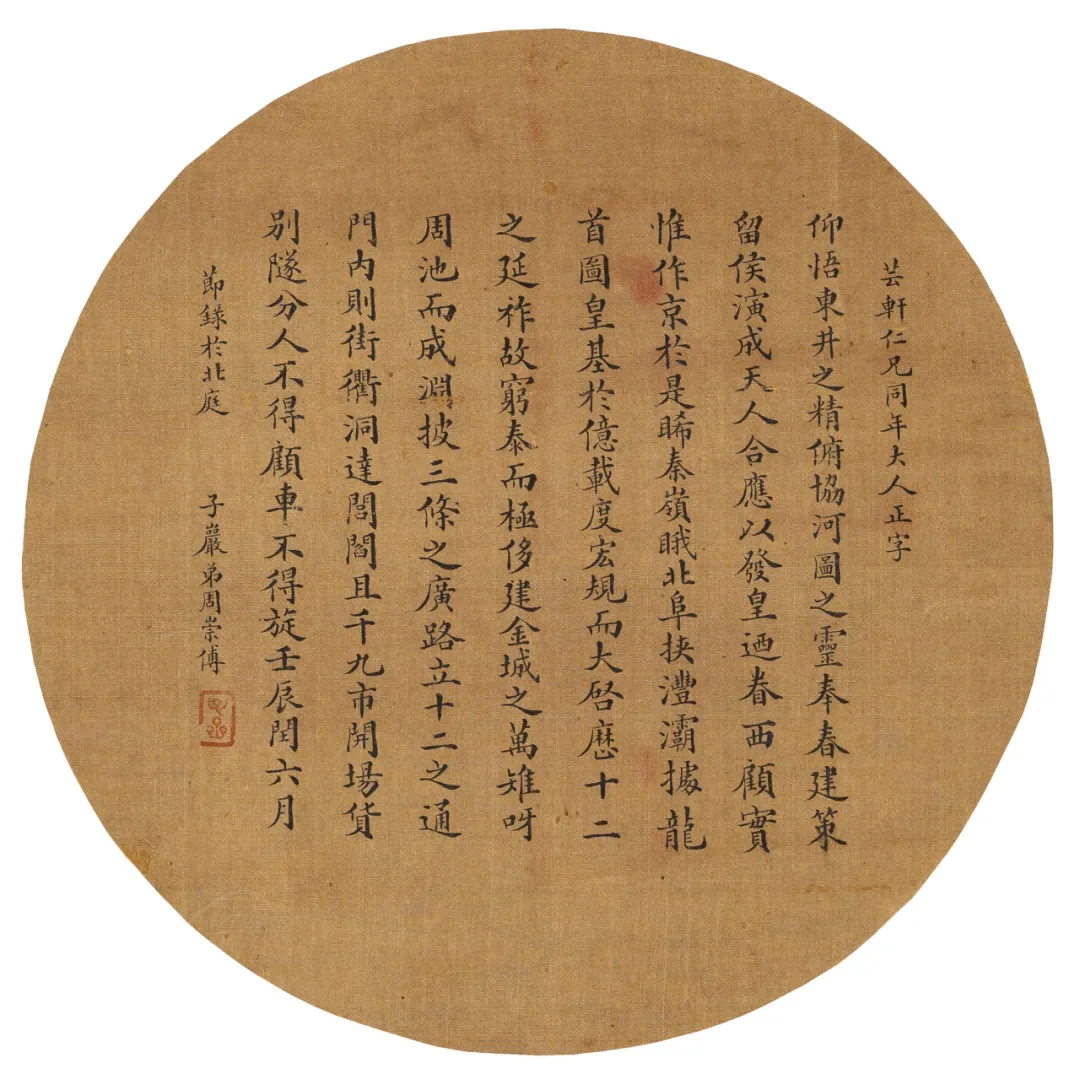 芸軒仁兄同年大人正字
仰悟東井之精俯協河圖之靈奉春建策
留侯演成天人合應以發皇迺眷西顧實
惟作京於是睎秦嶺睋北阜挾灃灞據龍
首圖皇基於億載度宏規而大啓歷十二
之延祚故窮泰而極侈建金城之萬雉呀
周池而成淵披三條之廣路立十二之通
門內則街衢洞達閭閻且千九市開場貨
別隧分人不得顧車不得旋壬辰閏六月
節錄於北庭 子巖弟周崇傅